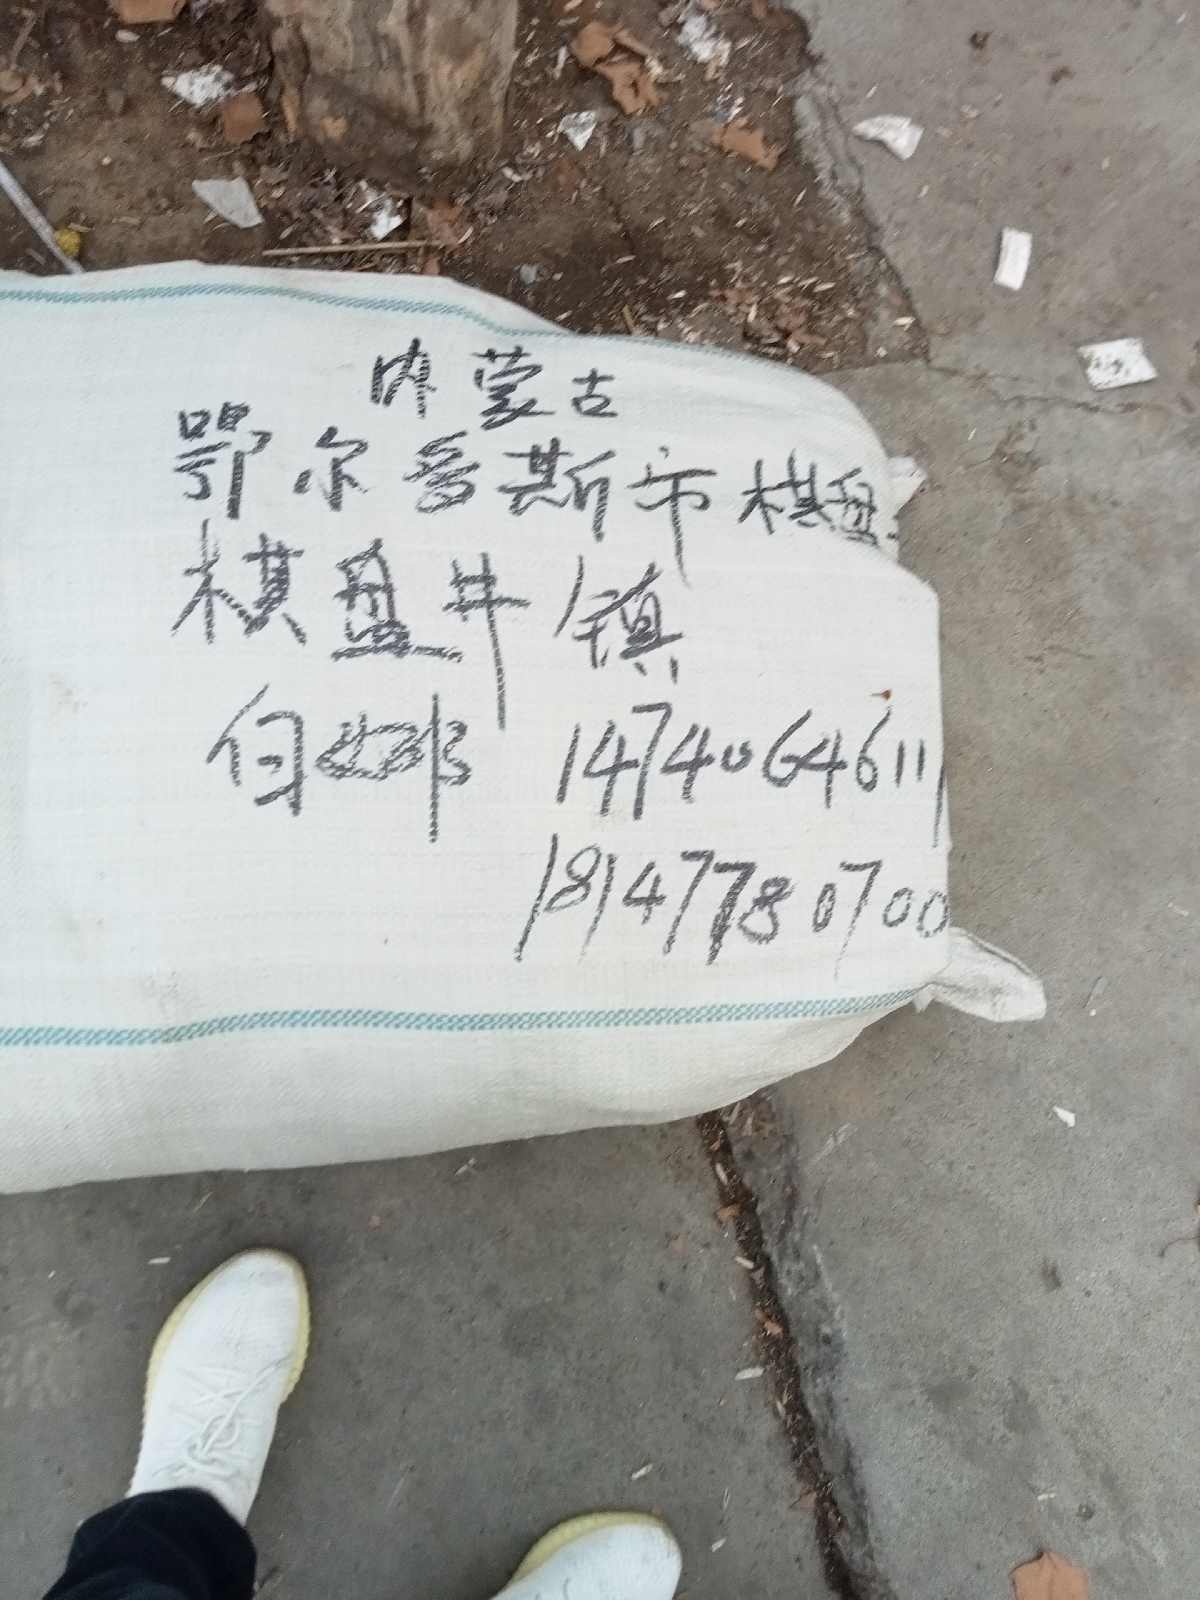 内蒙古
鄂尔多斯市棋盘
棋盘井镇
14740646111
18147780700